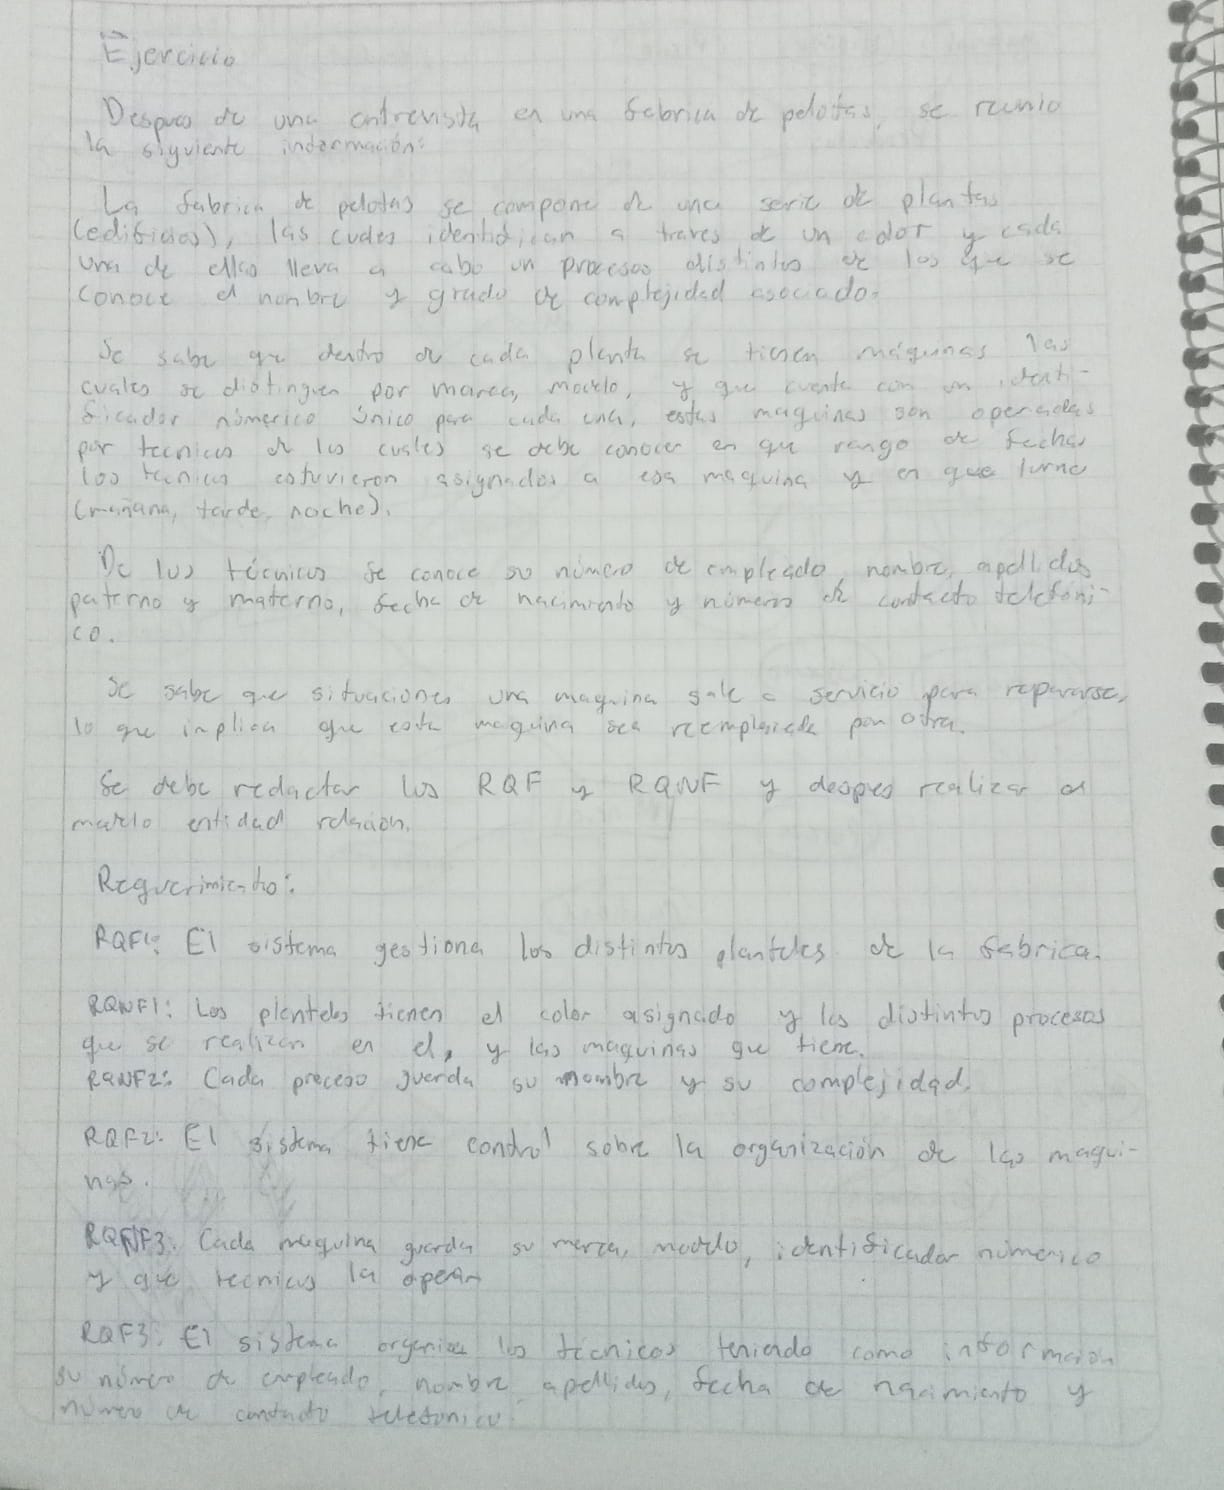 Ejercicio
Despues de una entrevista en una fabrica de pelotas, se reunio
la siguiente información:
La fabrica de pelotas se compone de una serie de plantas
(edificios), las cuales identifican a traves de un color y cada
una de ellas lleva a cabo un procesos distintos de los que se
conoce el nombre y grado de complejidad asociado.
Se sabe que dentro de cada planta se tienen máquinas las
cuales se distinguen por marca, modelo, y que cuenta con un identi-
ficador númerico único para cada una, estas maquinas son operadas
por tecnicos de los cuales se debe conocer en que rango de fechas
los tecnicos estuvieron asignados a esa maquina y en que turno
(mañana, tarde, noche).
De los técnicos se conoce su número de empleado, nombre, apellidos
paterno y materno, fecha de nacimiento y número de contacto telefoni-
co.
Se sabe que situaciones una maquina sale a servicio para repararse,
lo que implica que esta maquina sea reemplazada por otra.
Se debe redactar los RQF y RQNF y despues realizar el
modelo entidad relacion.
Requerimiento:
RQF1: El sistema gestiona los distintos planteles de la fabrica.
RQNF1: Los planteles tienen el color asignado y los distintos procesos
que se realizan en el, y las maquinas que tiene.
RQNF2: Cada proceso guarda su nombre y su complejidad.
RQF2: El sistema tiene control sobre la organización de las maqui-
nas.
RQNF3: Cada maquina guarda su marca, modelo, identificador númerico
y que tecnicos la operan
RQF3: El sistema organiza los técnicos teniendo como informacion
su número de empleado, nombre, apellidos, fecha de nacimiento y
número de contacto telefonico.